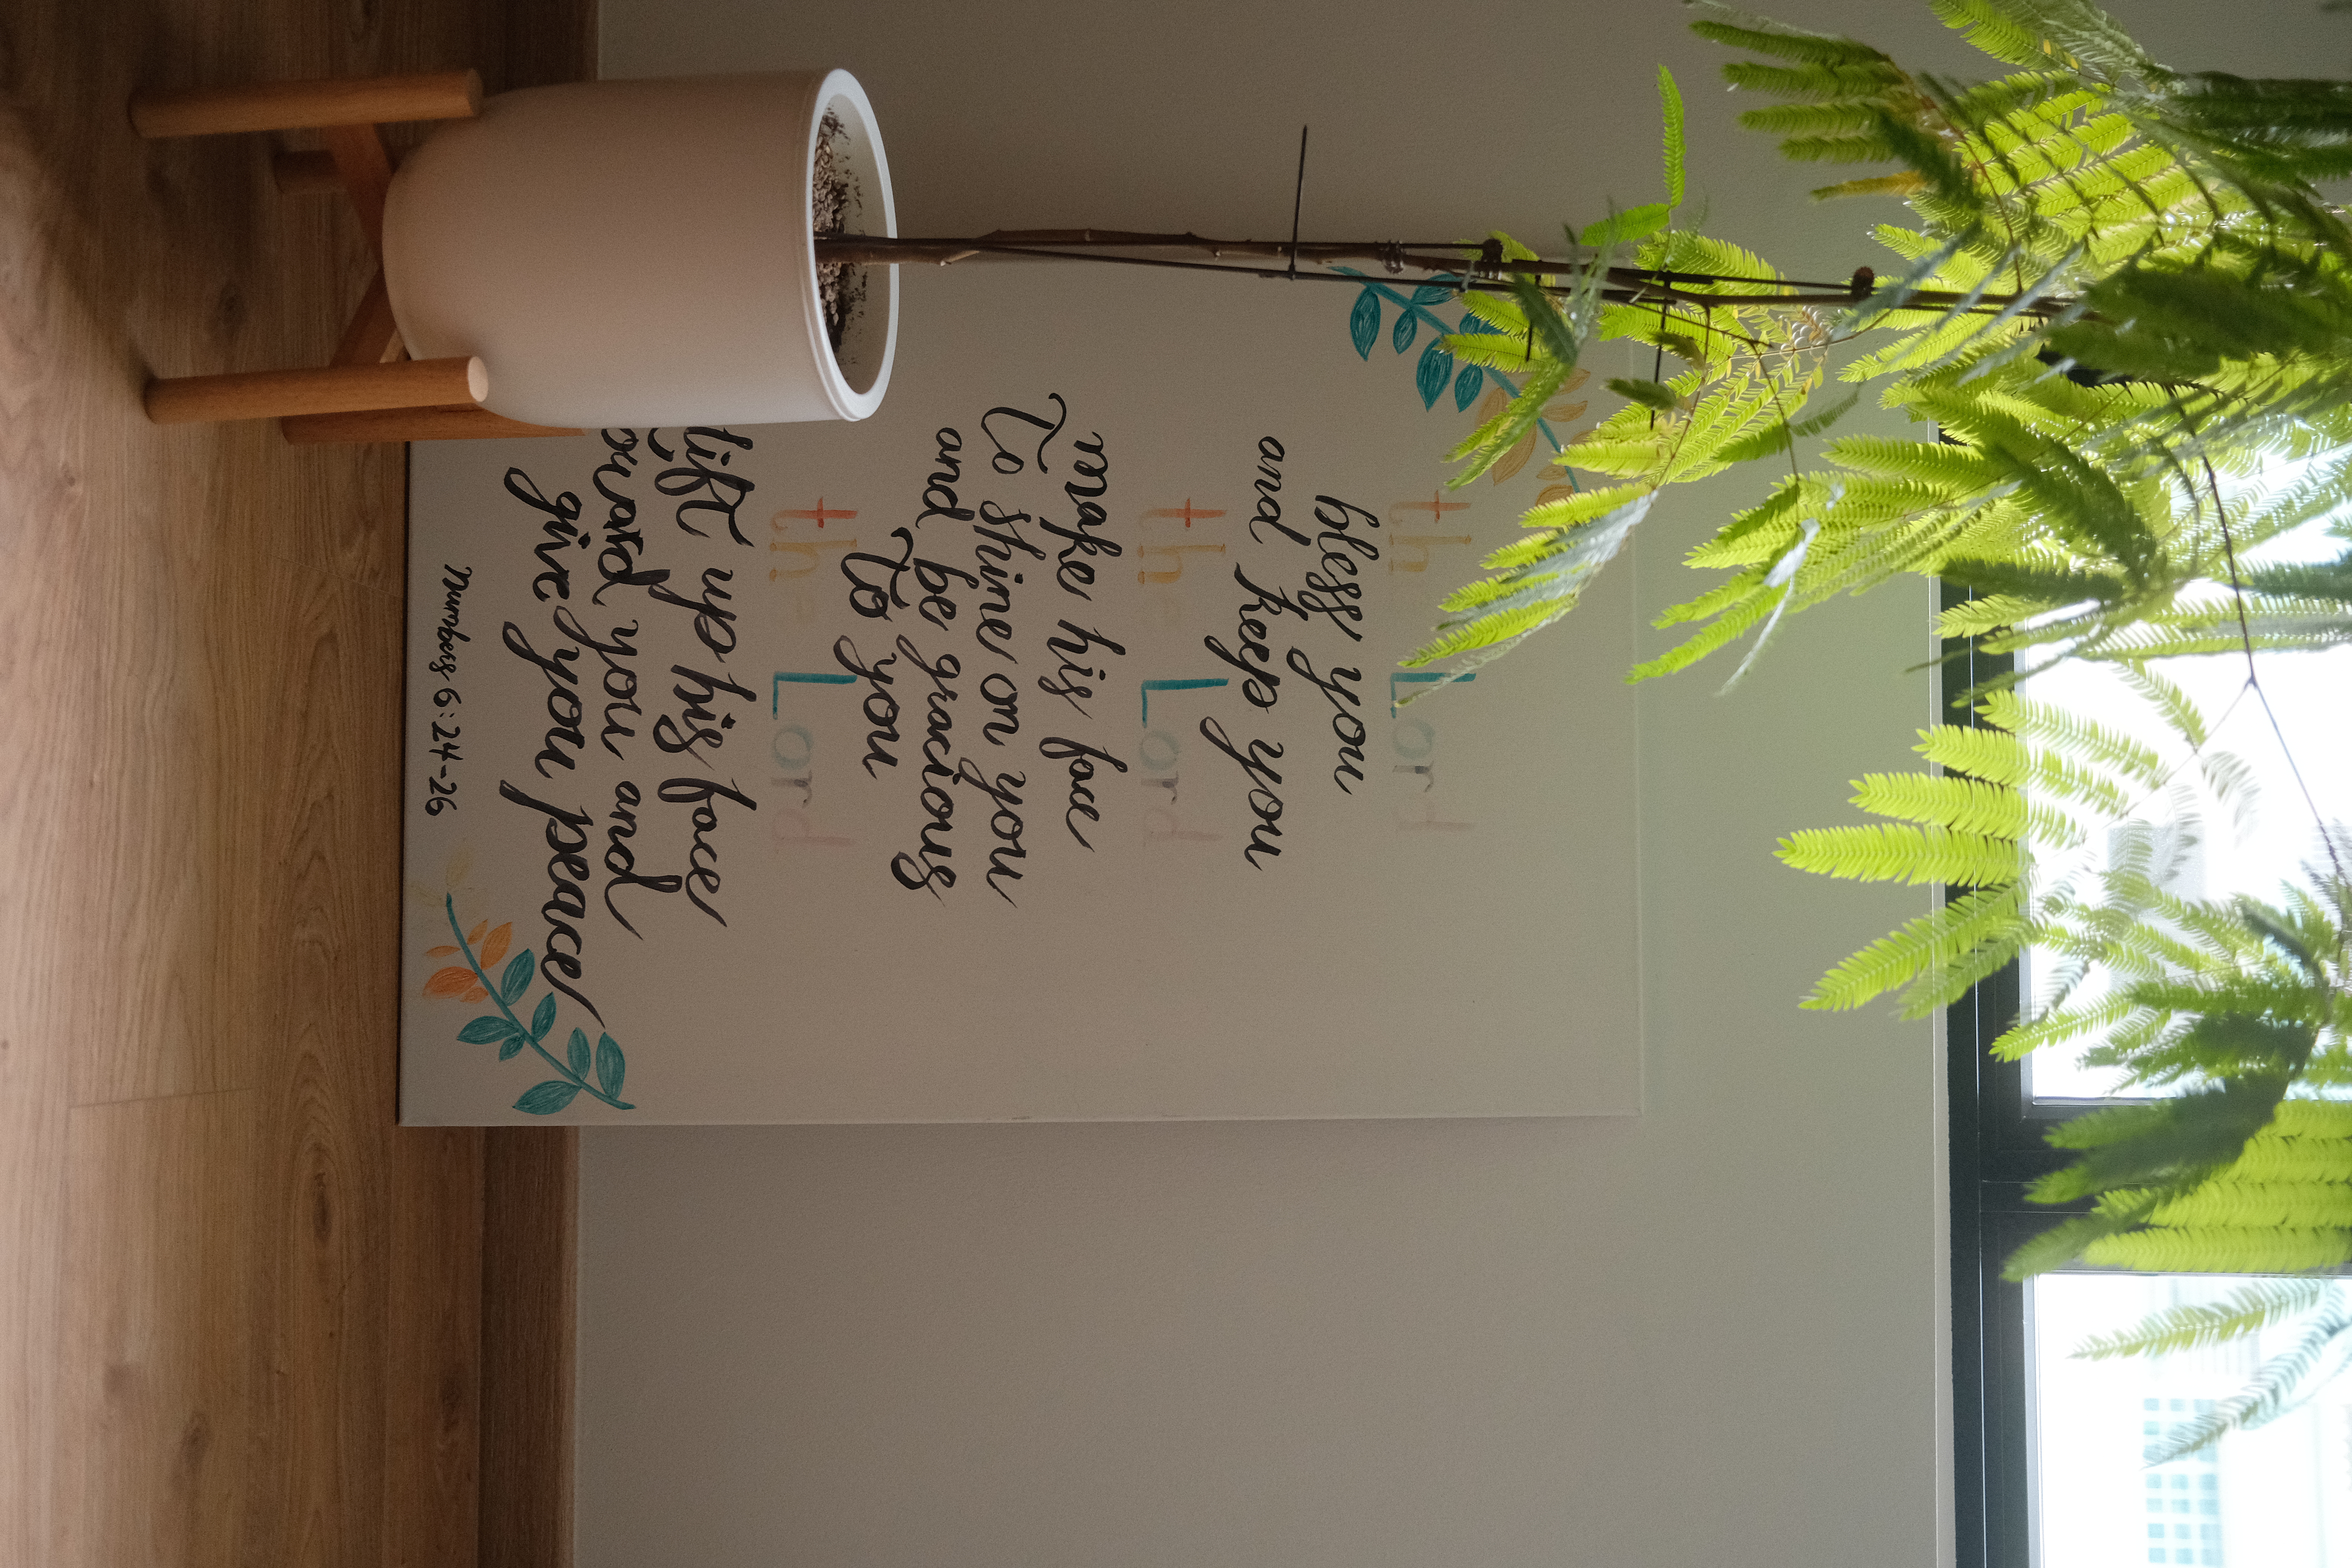 the Lord
bless you
and keep you
the Lord
make his face
To shine on you
and be gracious
To you
the Lord
lift up his face
toward you and
give you peace
Numbers 6:24-26